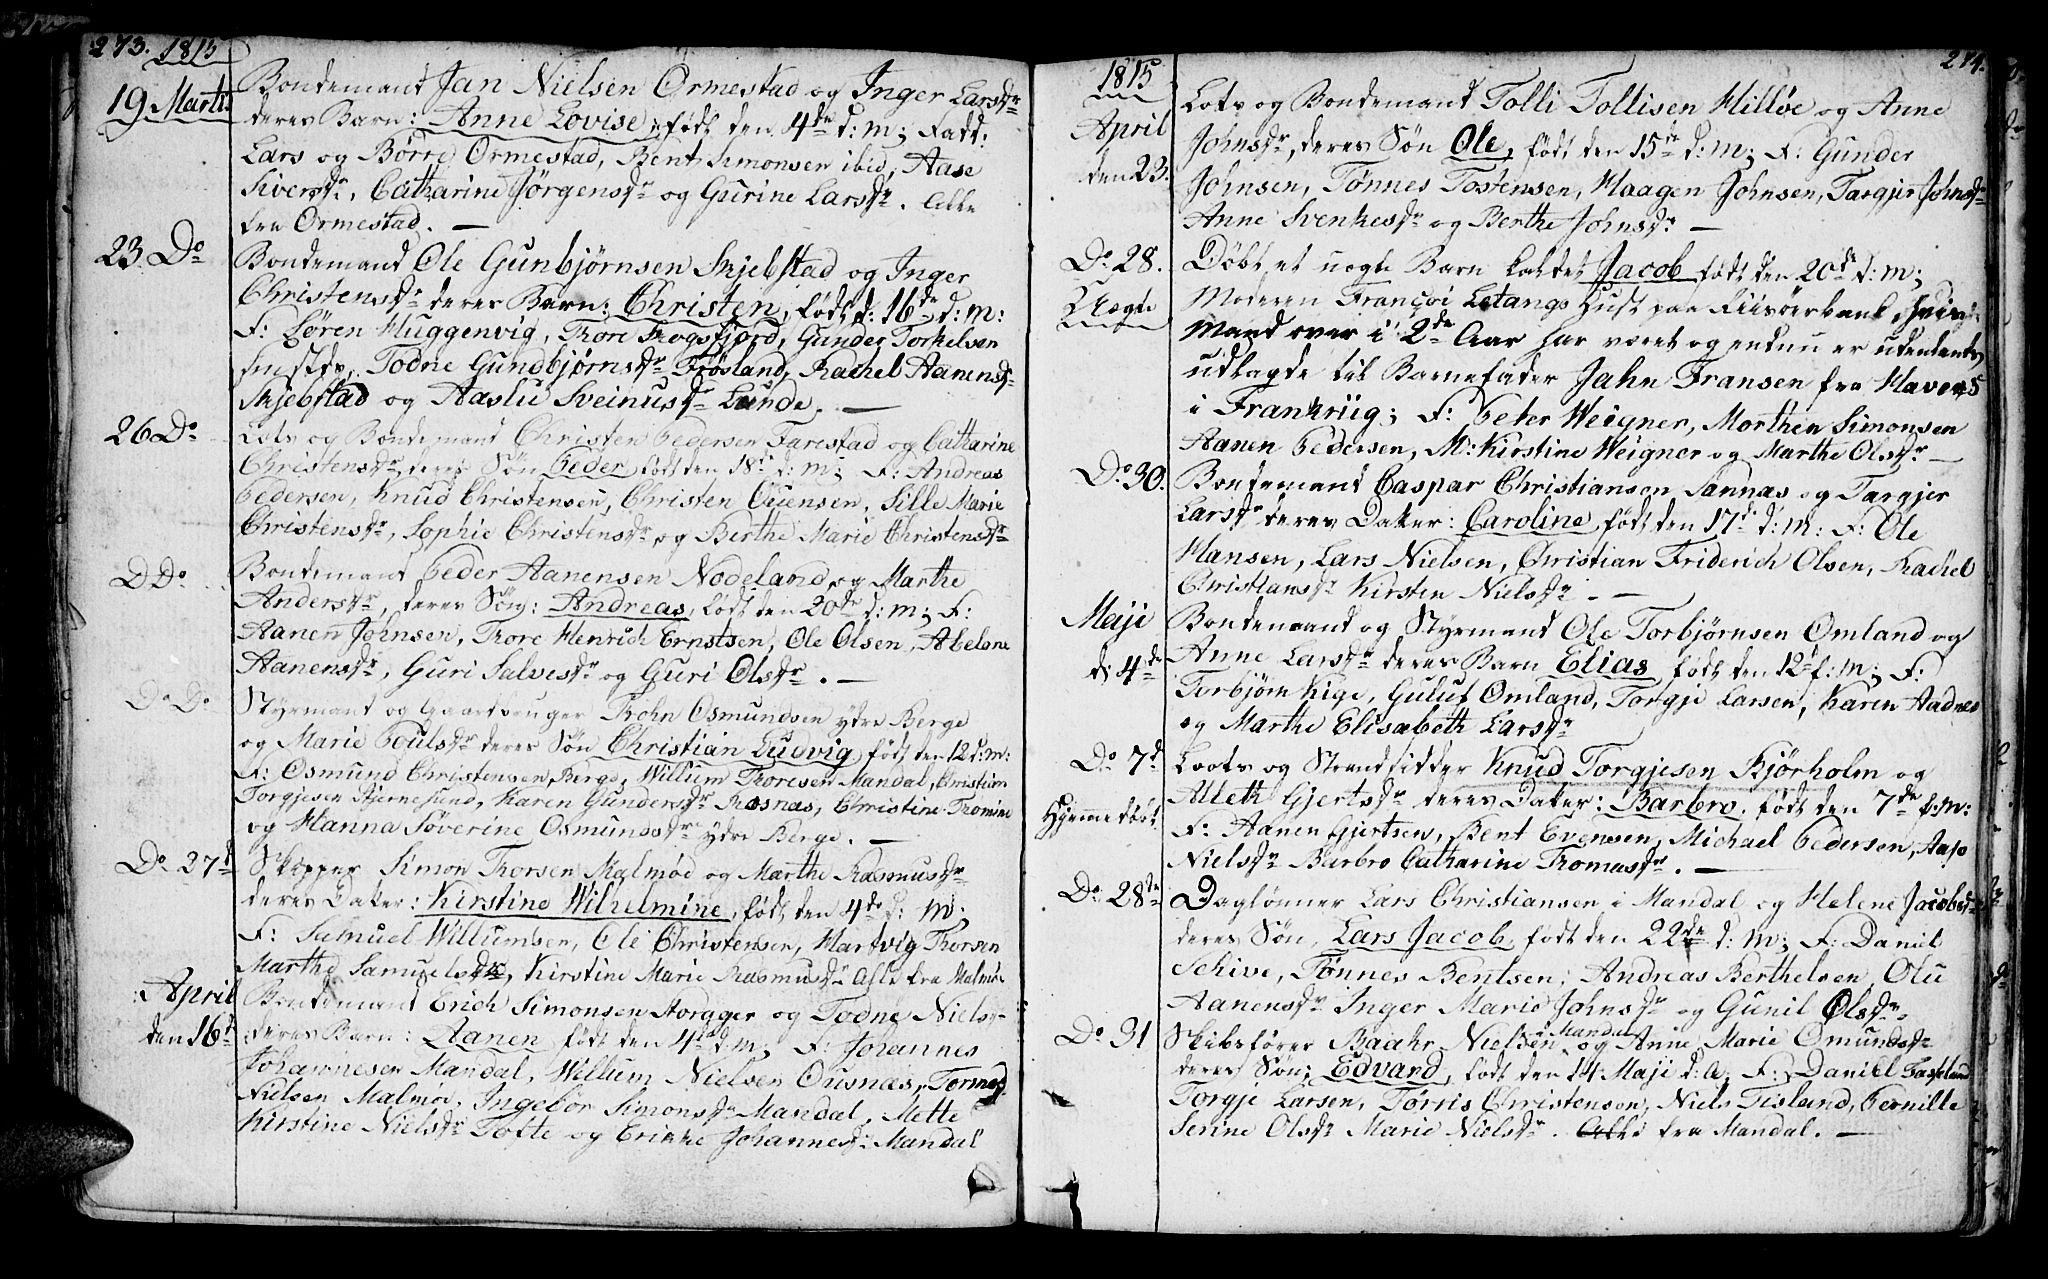 273. 1815
19 Martii
Bondemand Jan Nielsen Ormestad og Inger Larsdr
deres Barn: Anne Lovise, født den 4de d: m; Fadd:
Lars og Børre Ormestad, Bent Simonsen ibid, Aase
Siversdr, Catharine Jørgensdr og Gurine Larsdr. Alle
fra Ormestad. —
23 Do
Bondemand Ole Gunbjørnsen Skjebstad og Inger
Christensdr deres Barn: Christen, født d: 16de d: m:
F: Søren Huggenvig, Thore Trogsfjord, Gunder Torkelsen
Todne Gundbjørnsdr Frøsland, Rachel Aanensdr
Skjebstad og Aaslu Sveinusdr Lunde. —
26 Do
Lots og Bondemand Christen Pedersen Farestad og Catharine
Christensdr, deres Søn Peder født den 18de d: m; F: Andreas
Pedersen, Knud Christensen, Christen Evensen, Sille Marie
Christensdr, Sophie Christensdr og Berthe Marie Christensdr
D Do
Bondemand Peder Aanensen Nodeland og Marthe
Andersdr, deres Søn: Andreas, født den 20de d: m; F:
Aanen Johnsen, Thore Henrich Ernstsen, Ole Olsen, Abelone
Aanensdr, Guri Salvesdr og Guri Olsdr. —
Do Do
Styrmand og Gaardbruger Thohn Osmundsen ydre Berge
og Marie Poulsdr deres Søn Christian Ludvig født den 12 d: m:
F: Osmund Christensen Berge, Willum Thoresen Mandal, Christian
Torgjesen Stjernesund, Karen Gundersdr Risnæs, Christine Thomine
og Hanna Søverine Osmundsdr ydre Berge. —
Do 27d
Skipper Simon Thorsen Malmøe og Marthe Rasmusdr
deres Dater: Kirstine Wilhelmine, født den 4de d: m;
F: Samuel Willumsen, Ole Christensen, Hartvig Thorsen
Marthe Samuelsdr, Kirstine Marie Rasmusdr Alle fra Malmøe
April
den 16d
Bondemand Erich Simonsen Hogger og Todne Niels-
deres Barn: Aanen født den 4de d: m; F: Johannes
Johannesen Mandal, Willum Nielsen Ousnæs, Tormod
Nielsen Malmøe, Ingebor Simonsdr Mandal, Mette
Kirstine Nielsdr Tofte og Erikke Johannesd: Mandal
274.
1815
April
den 23.
Lots og Bondemand Tolli Tollisen Hilløe og Anne
Johnsdr, deres Søn Ole, født den 15de d: m; F: Gunder
Johnsen, Tønnes Tostensen, Haagen Johnsen, Targjer Johnsdr
Anne Svenkesdr og Berthe Johnsdr —
Do 28.
Uægte
Døbt et uægte Barn kaldet Jacob født den 20de d: m;
Moderen Françoi Letangs Hust paa Riisøerbank, hvis
Mand over i 2de Aar har været og endnu er udenlands,
udlagde til Barnefader Jahn Fransen fra Havens
i Frankriig; F: Peter Weigner, Morthen Simonsen
Aanen Pedersen, M: Kirstine Weigner og Marthe Olsdr —
Do 30.
Bondemand Caspar Christiansen Sannæs og Targjer
Larsdr deres Dater: Caroline, født den 17de d: m: F: Ole
Hansen, Lars Nielsen, Christian Friderich Olsen, Rachel
Christiansdr Kirsten Nielsdr. —
Maji
d: 4de
Bondemand og Styrmand Ole Torbjørnsen Omland og
Anne Larsdr deres Barn Elias, født den 12d f: m; F:
Torbjørn Kige, Guluf Omland, Torgje Larsen, Karen Aadnes
og Marthe Elisabeth Larsdr
Do 7d
Hjemmedøbt
Loots og Strandsidder Knud Torgjesen Kjørholm og
Alleth Gjertsdr deres Dater: Barbro, født den 7de f: m:
F: Aanen Gjertsen, Bent Evensen, Michael Pedersen, Aase
Nielsdr Barbro Catharine Thomasdr. —
Do 28de
Daglønner Lars Christiansen i Mandal og Helene Jacobsdr
deres Søn, Lars Jacob, født den 22de d: m; F: Daniel
Schive, Tønnes Bentsen, Andreas Berthelsen, Olu
Aanensdr Inger Marie Johnsdr og Gunil Olsdr.
Do 31
Skibsfører Baahr Nielsen i Mandal og Anne Marie Omundsdr
deres Søn; Edvard, født den 14 Maji d: A; F: Daniel
Torgje Larsen, Tørris Christensen, Niels Tisland, Pernille
Serine Olsdr Marie Nielsdr. Alle fra Mandal. —